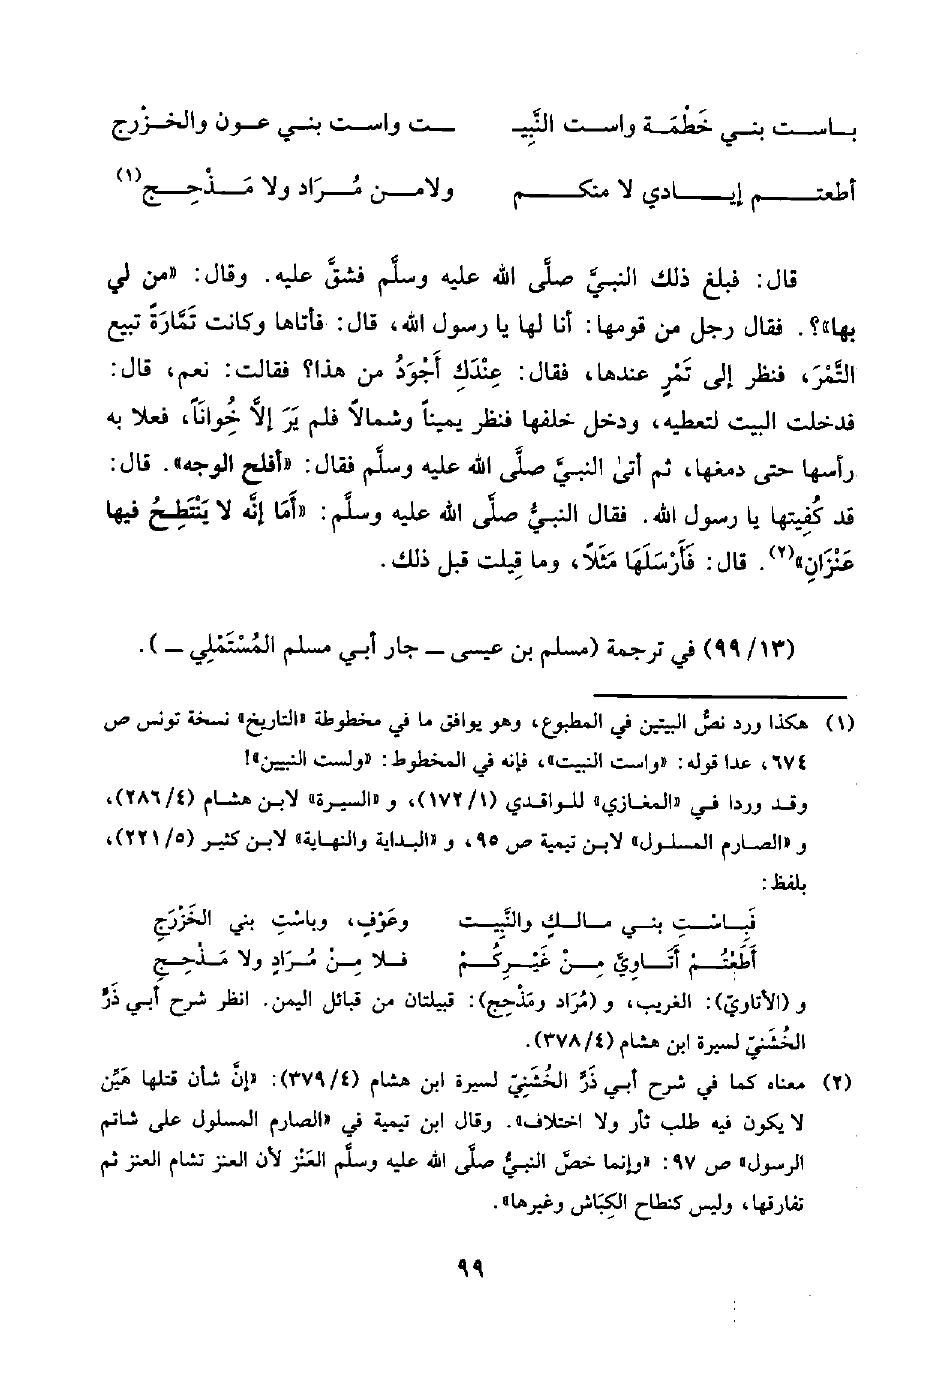 بـاسـت بـنـي خَطْمَـة واسـت النَّبِيـ ـت واسـت بـنـي عـون والخـزْرج
أطعتـم إيـادي لا منكـم ولامـن مُـرَاد ولا مَـذْحِـج(١)
قال: فبلغ ذلك النبيَّ صلَّى الله عليه وسلَّم فشقَّ عليه. وقال: «من لي
بها»؟. فقال رجل من قومها: أنا لها يا رسول الله، قال: فأتاها وكانت تَمَّارَةً تبيع
التَّمْرَ، فنظر إلى تَمْرٍ عندها، فقال: عِنْدَكِ أَجْوَدُ من هذا؟ فقالت: نعم، قال:
فدخلت البيت لتعطيه، ودخل خلفها فنظر يميناً وشمالاً فلم يَرَ إلاَّ خُواناً، فعلا به
رأسها حتى دمغها، ثم أتىٰ النبيَّ صلَّى الله عليه وسلَّم فقال: «أفلح الوجه». قال:
قد كُفِيتها يا رسول الله. فقال النبيُّ صلَّى الله عليه وسلَّم: «أَمَا إنَّه لا يَنْتَطِحُ فيها
عَنْزَانِ»(٢). قال: فَأَرْسَلَهَا مَثَلاً، وما قيلت قبل ذلك.
(٩٩/١٣) في ترجمة (مسلم بن عيسى ــ جار أبي مسلم المُسْتَمْلِي ــ).
(١) هكذا ورد نصُّ البيتين في المطبوع، وهو يوافق ما في مخطوطة «التاريخ» نسخة تونس ص
٦٧٤، عدا قوله: «واست النبيت»، فإنه في المخطوط: «ولست النبيين»!
وقد وردا في «المغازي» للواقدي (١٧٢/١)، و «السيرة» لابن هشام (٢٨٦/٤)،
و «الصارم المسلول» لابن تيمية ص ٩٥، و «البداية والنهاية» لابن كثير (٢٢١/٥)،
بلفظ:
فَبِـاسْـتِ بنـي مـالـكٍ والنَّبِيـت وعَوْفٍ، وباسْتِ بني الخَزْرَجِ
أَطَعْتُـم أَتَـاوِيَّ مِـنْ غَيْـرِكُـمْ فـلا مِـنْ مُـرَادٍ ولا مَـذْحِـجِ
و (الأتاويّ): الغريب، و (مُرَاد ومَذْحِج): قبيلتان من قبائل اليمن. انظر شرح أبي ذَرٍّ
الخُشَنِيّ لسيرة ابن هشام (٣٧٨/٤).
(٢) معناه كما في شرح أبي ذَرٍّ الخُشَنِيّ لسيرة ابن هشام (٣٧٩/٤): «إنَّ شأن قتلها هَيِّن
لا يكون فيه طلب ثأر ولا اختلاف». وقال ابن تيمية في «الصارم المسلول على شاتم
الرسول» ص ٩٧: «وإنما خصَّ النبيُّ صلَّى الله عليه وسلَّم العَنْز لأن العنز تشام العنز ثم
تفارقها، وليس كنطاح الكِبَاش وغيرها».
٩٩